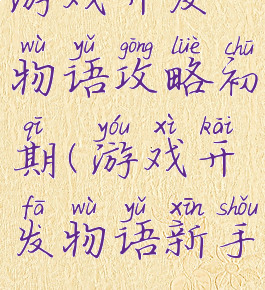 游戏开发
wù yǔ gōng lüè chū
物语攻略初
qī yóu xì kāi
期(游戏开
fā wù yǔ xīn shǒu
发物语新手